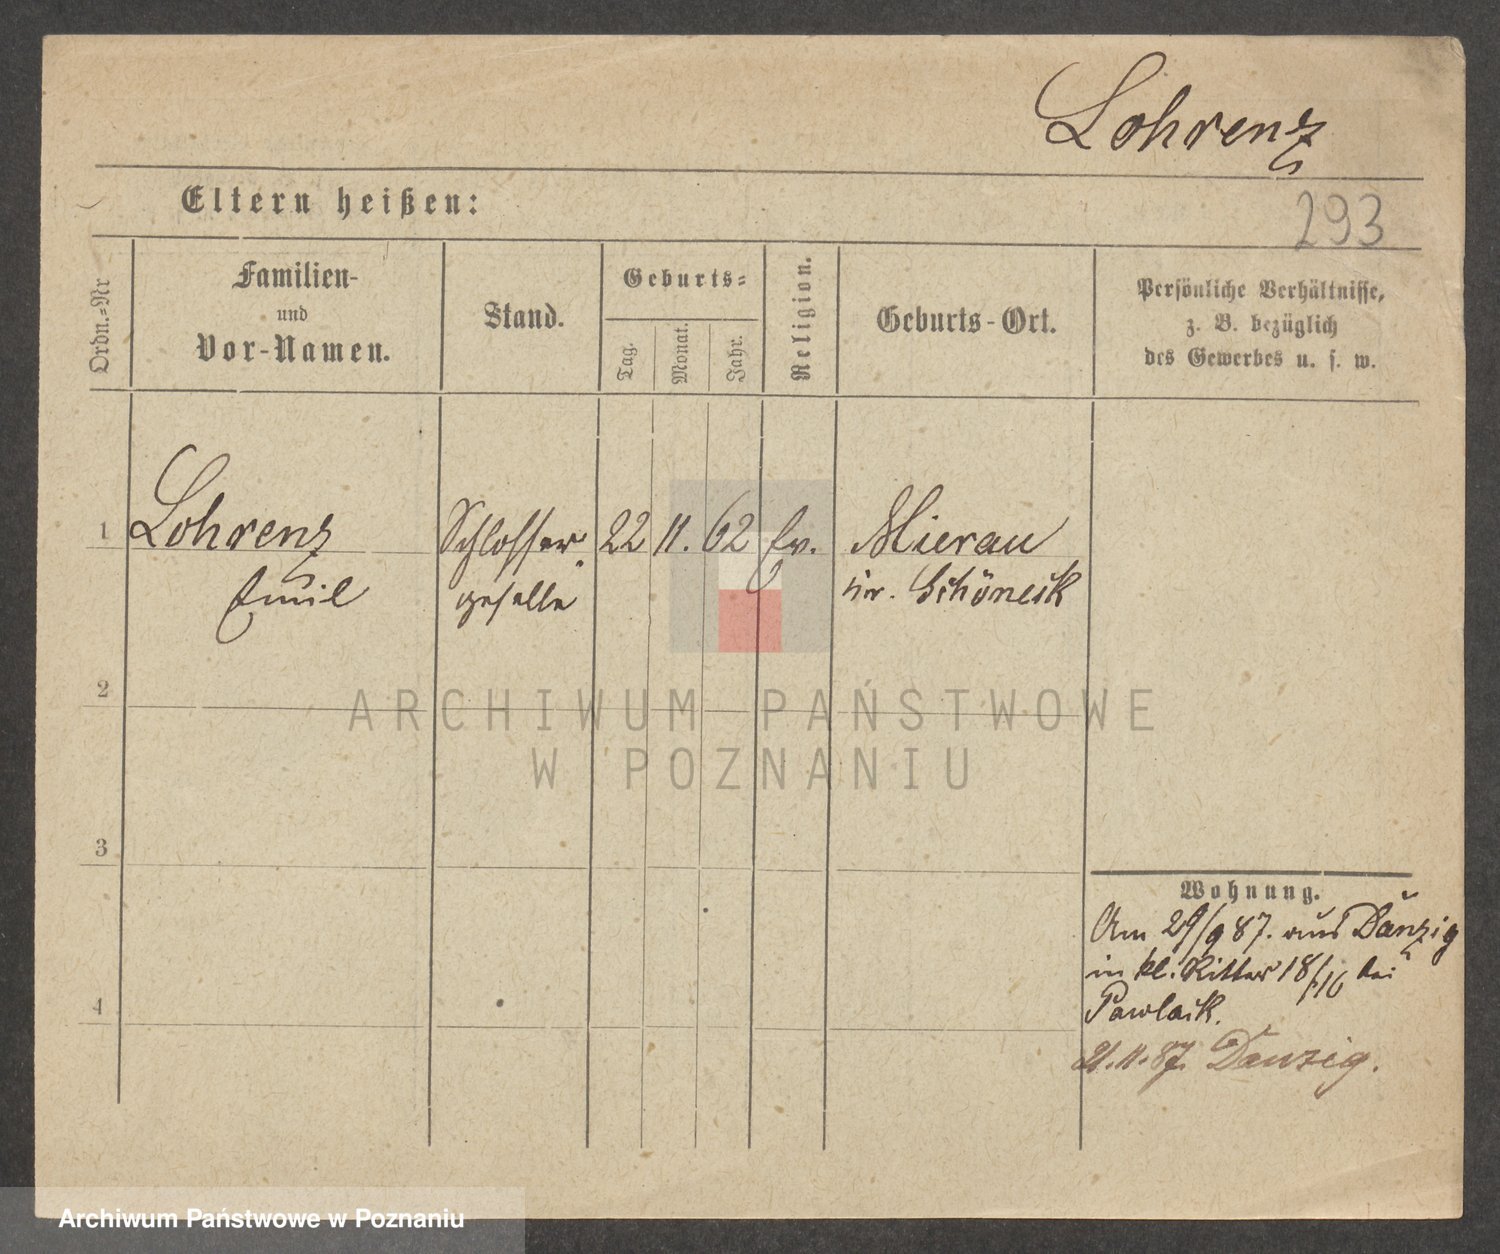 Lohrenz
Eltern heißen:
293
Ordn.=Nr
Familien-
und
Vor-Namen.
Stand.
Geburts=
Tag.
Monat.
Jahr.
Religion.
Geburts-Ort.
Persönliche Verhältnisse,
z. B. bezüglich
des Gewerbes u. s. w.
1 Lohrenz Schlosser 22 11. 62 Ev. Mierau
Emil geselle Kr. Schöneck
2
ARCHIWUM PAŃSTWOWE
W POZNANIU
3
Wohnung.
Am 29/9 87. aus Danzig
in kl. Ritter 18/ bei
Pawlack.
4
21.11.87. Danzig.
Archiwum Państwowe w Poznaniu